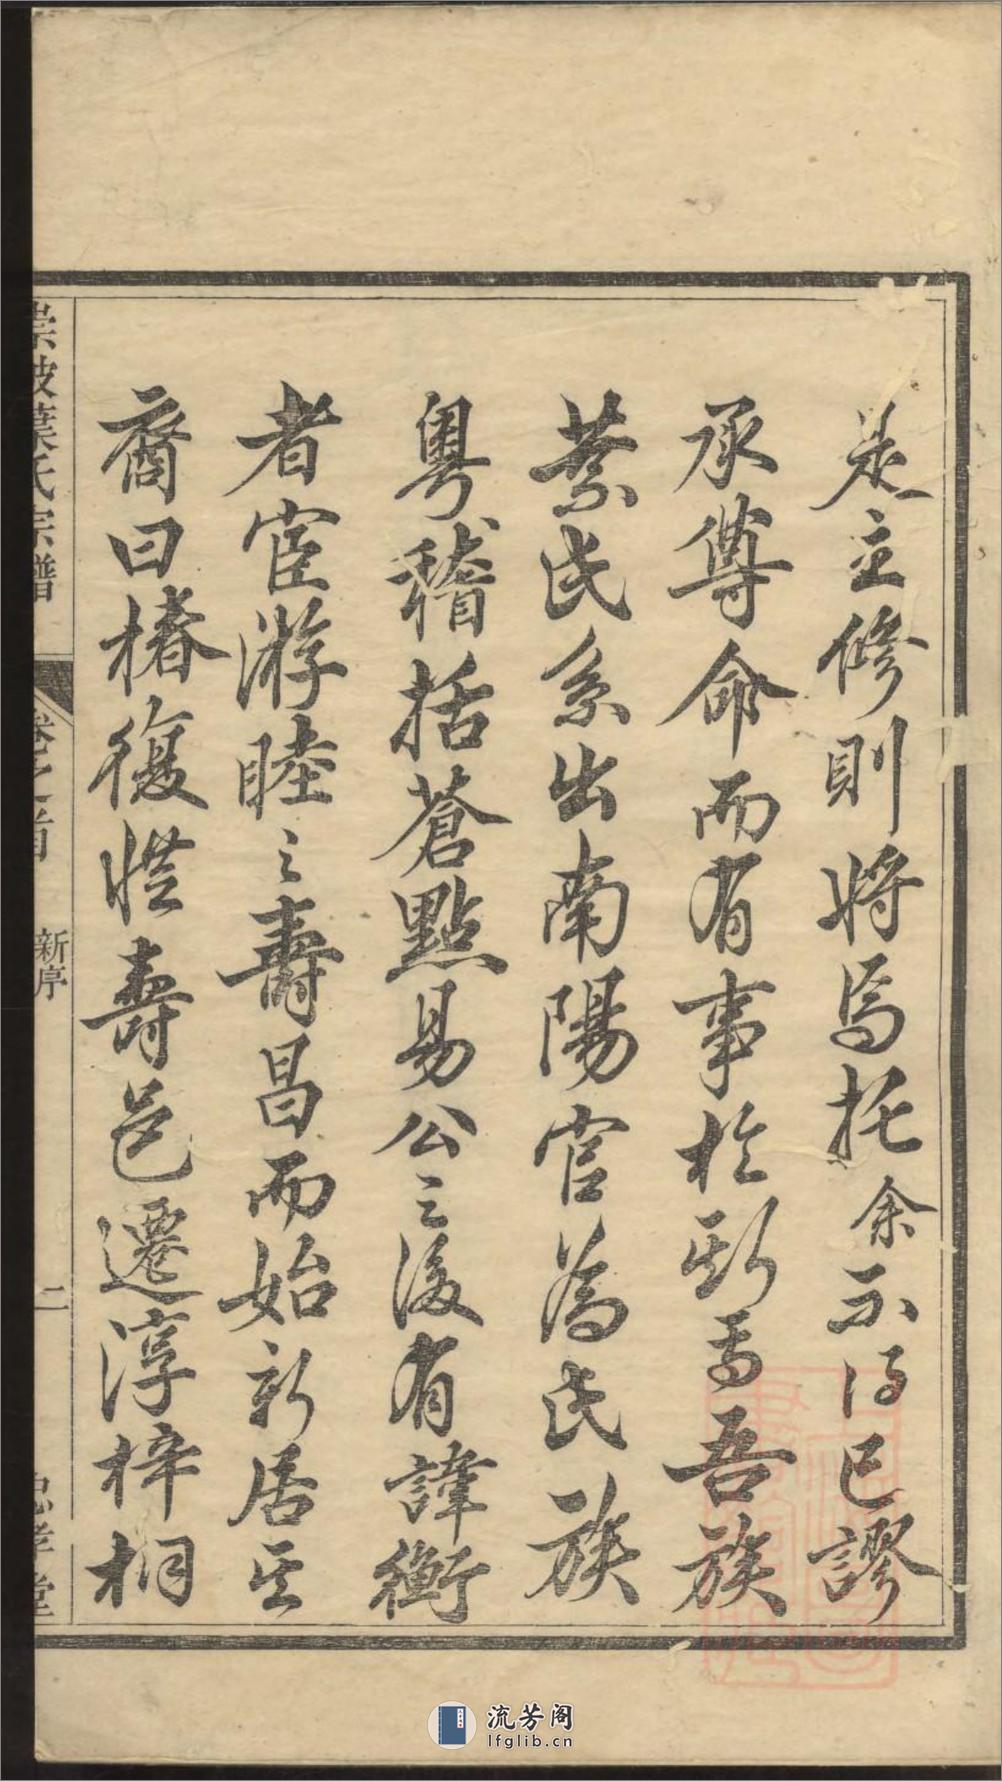 是之修則將焉托余不得已謬
承尊命而有事於斯焉吾族
葉氏系出南陽官為氏族
粵稽括蒼點易公之後有諱衡
者宦游睦之壽昌而始新居其
裔曰椿復徙壽邑遷淳梓桐
葉氏宗譜
卷之首
新序
二
堂
流芳阁
lfglib.cn